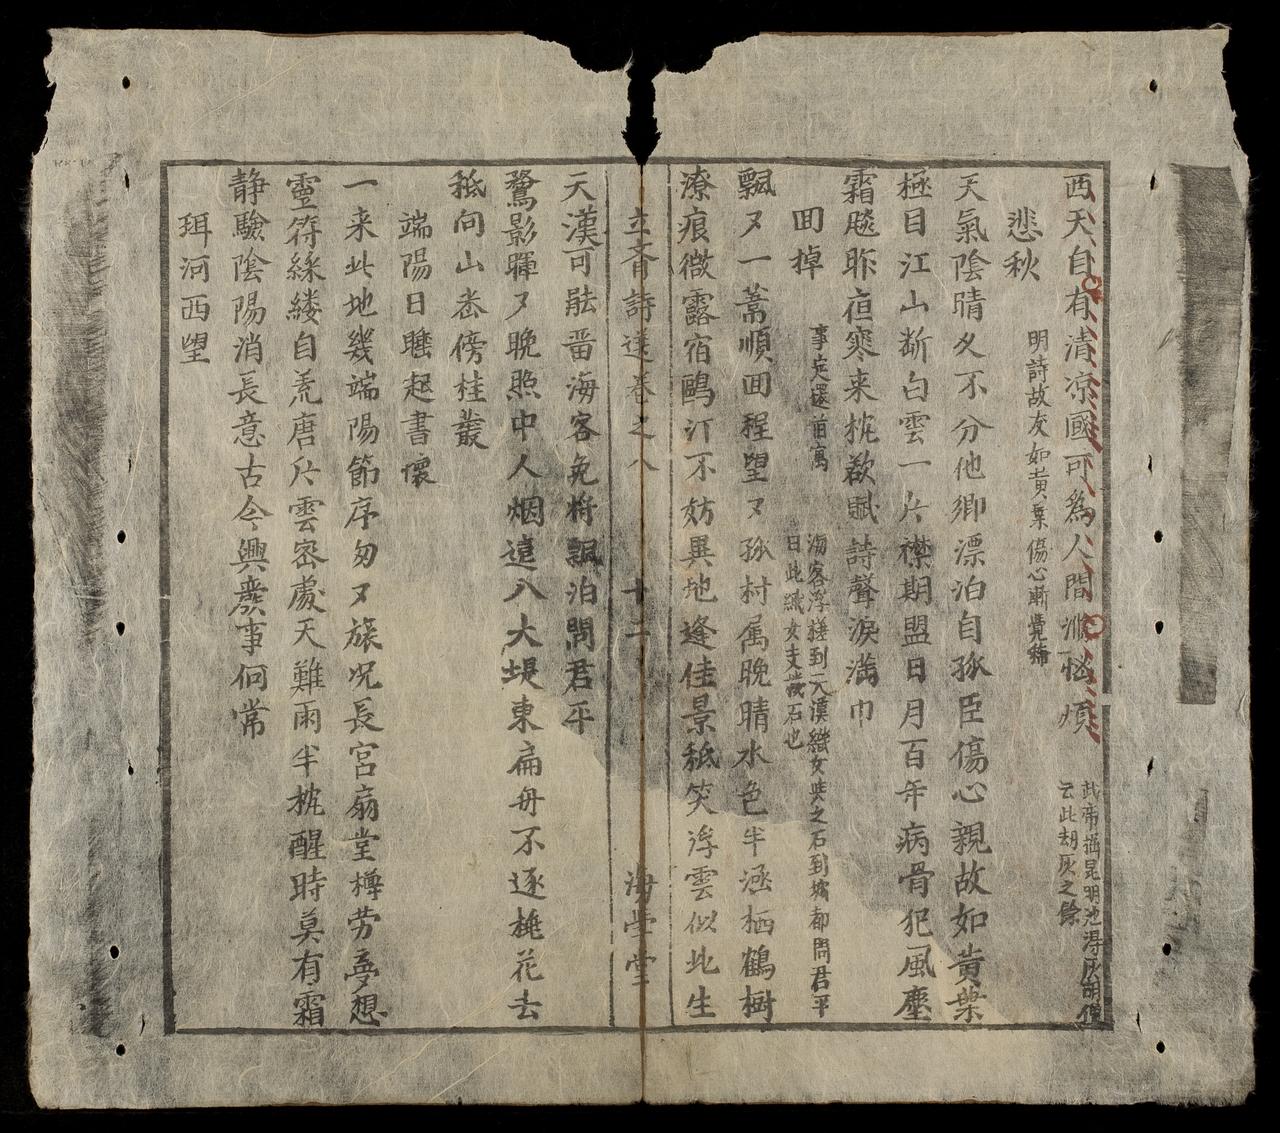 西天自有清凉國可為人間洲惱煩
武帝掘昆明池得灰胡僧
云此刧灰之餘
悲秋
明詩故友如黄葉傷心漸覺稀
天氣陰晴久不分他鄉漂泊自孤臣傷心親故如黄葉
極目江山断白雲一片襟期盟日月百年病骨犯風塵
霜飈昨夜寒来枕欲賦詩聲淚滿巾
囬掉
事定還首寓
海客浮槎到天漢織女與之石到城都問君平
日此織女支機石也
飄〻一蒿順囬程望〻孤村属晚晴水色半涵栖鶴樹
潦痕微露宿鷗汀不妨異地逢佳景秪笑浮雲似此生
立齋詩選卷之八
十二
海堂
天漢可能畱海客免将飄泊問君平
鶩影暉〻晚照中人烟遠八大堤東扁舟不逐桃花去
秪向山岩傍桂叢
端陽日睡起書懷
一来此地幾端陽節序匆〻旅况長宫扇堂樽劳夢想
靈符綵縷自荒唐片雲密處天難雨半枕醒時莫有霜
静驗陰陽消長意古今興廢事何常
珥河西望